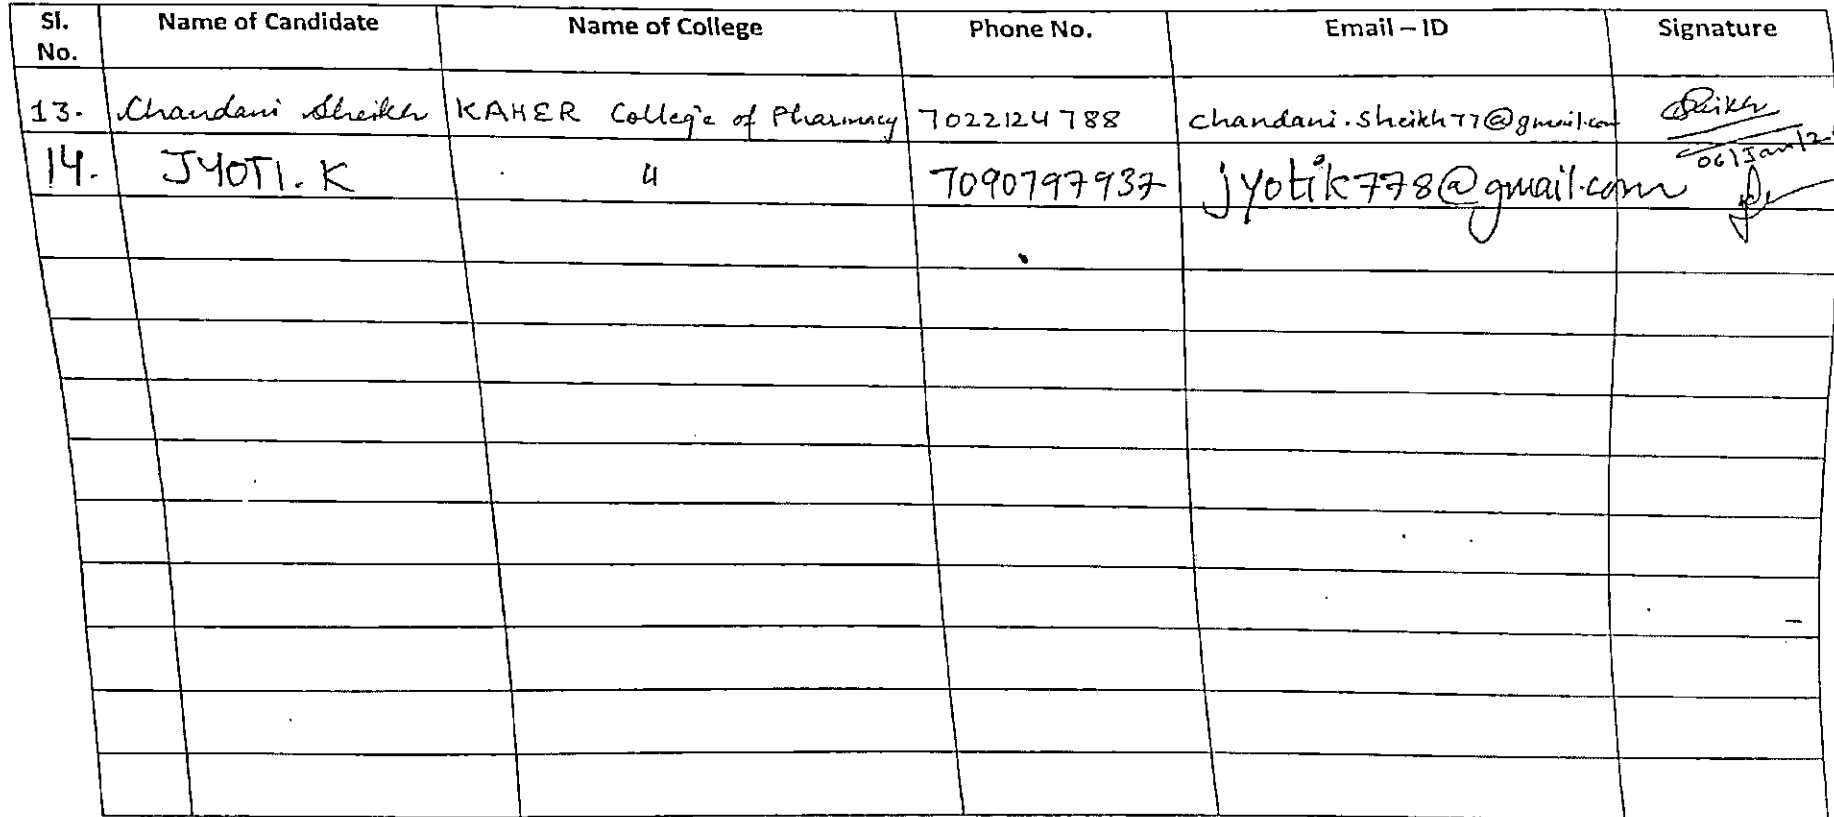 Sl. No. Name of Candidate Name of College Phone No. Email – ID Signature
13. Chandani Sheikh KAHER College of Pharmacy 7022124788 chandani.sheikh77@gmail.com Sheikh
06/Jan/2
14. JYOTI. K 〃 7090797937 jyotik778@gmail.com